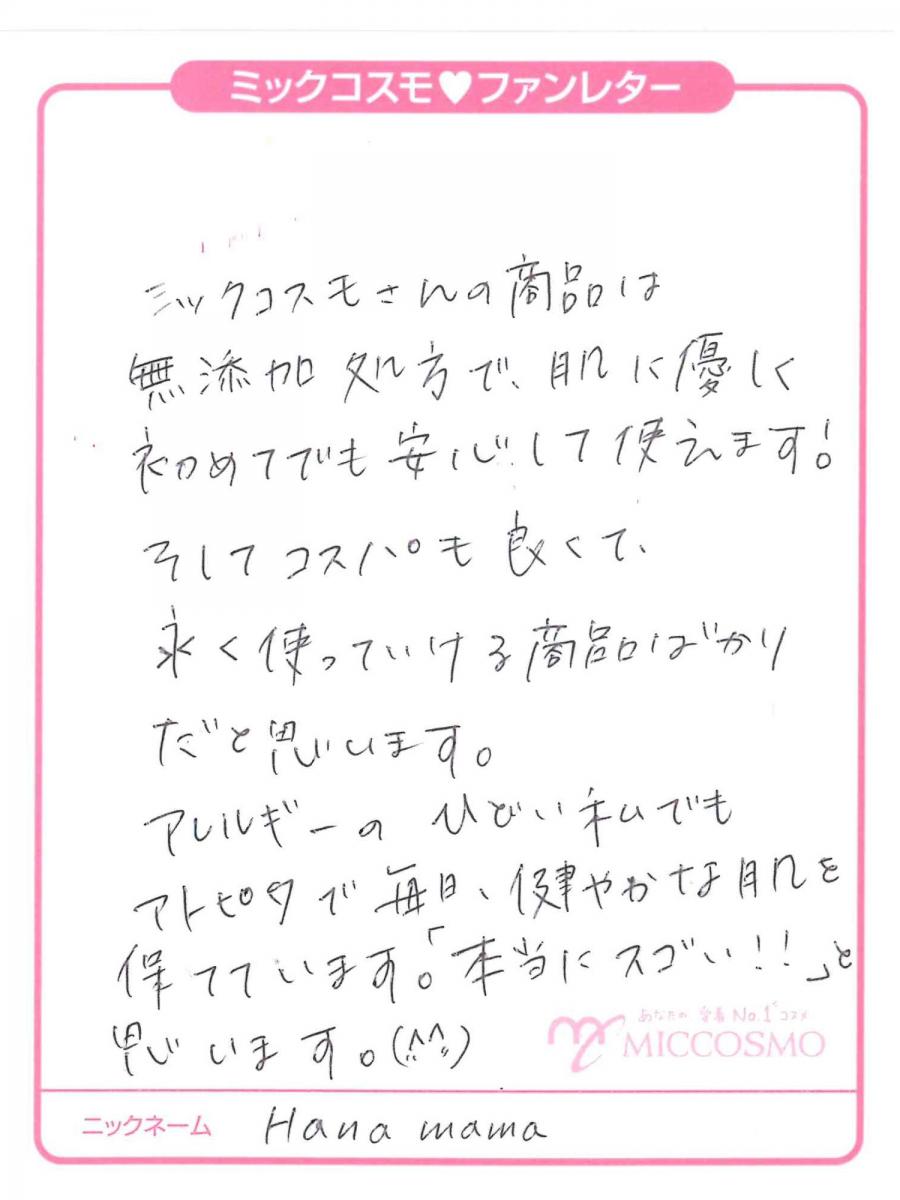 ミックコスモ♥ファンレター
ミックコスモさんの商品は
無添加処方で、肌に優しく
初めてでも安心して使えます!
そしてコスパも良くて、
永く使っていける商品ばかり
だと思います。
アレルギーのひどい私でも
アトピタで毎日、健やかな肌を
保てています。「本当にスゴい!!」と
思います。(^^)
あなたの 愛着No.1コスメ
MICCOSMO
ニックネーム Hana mama